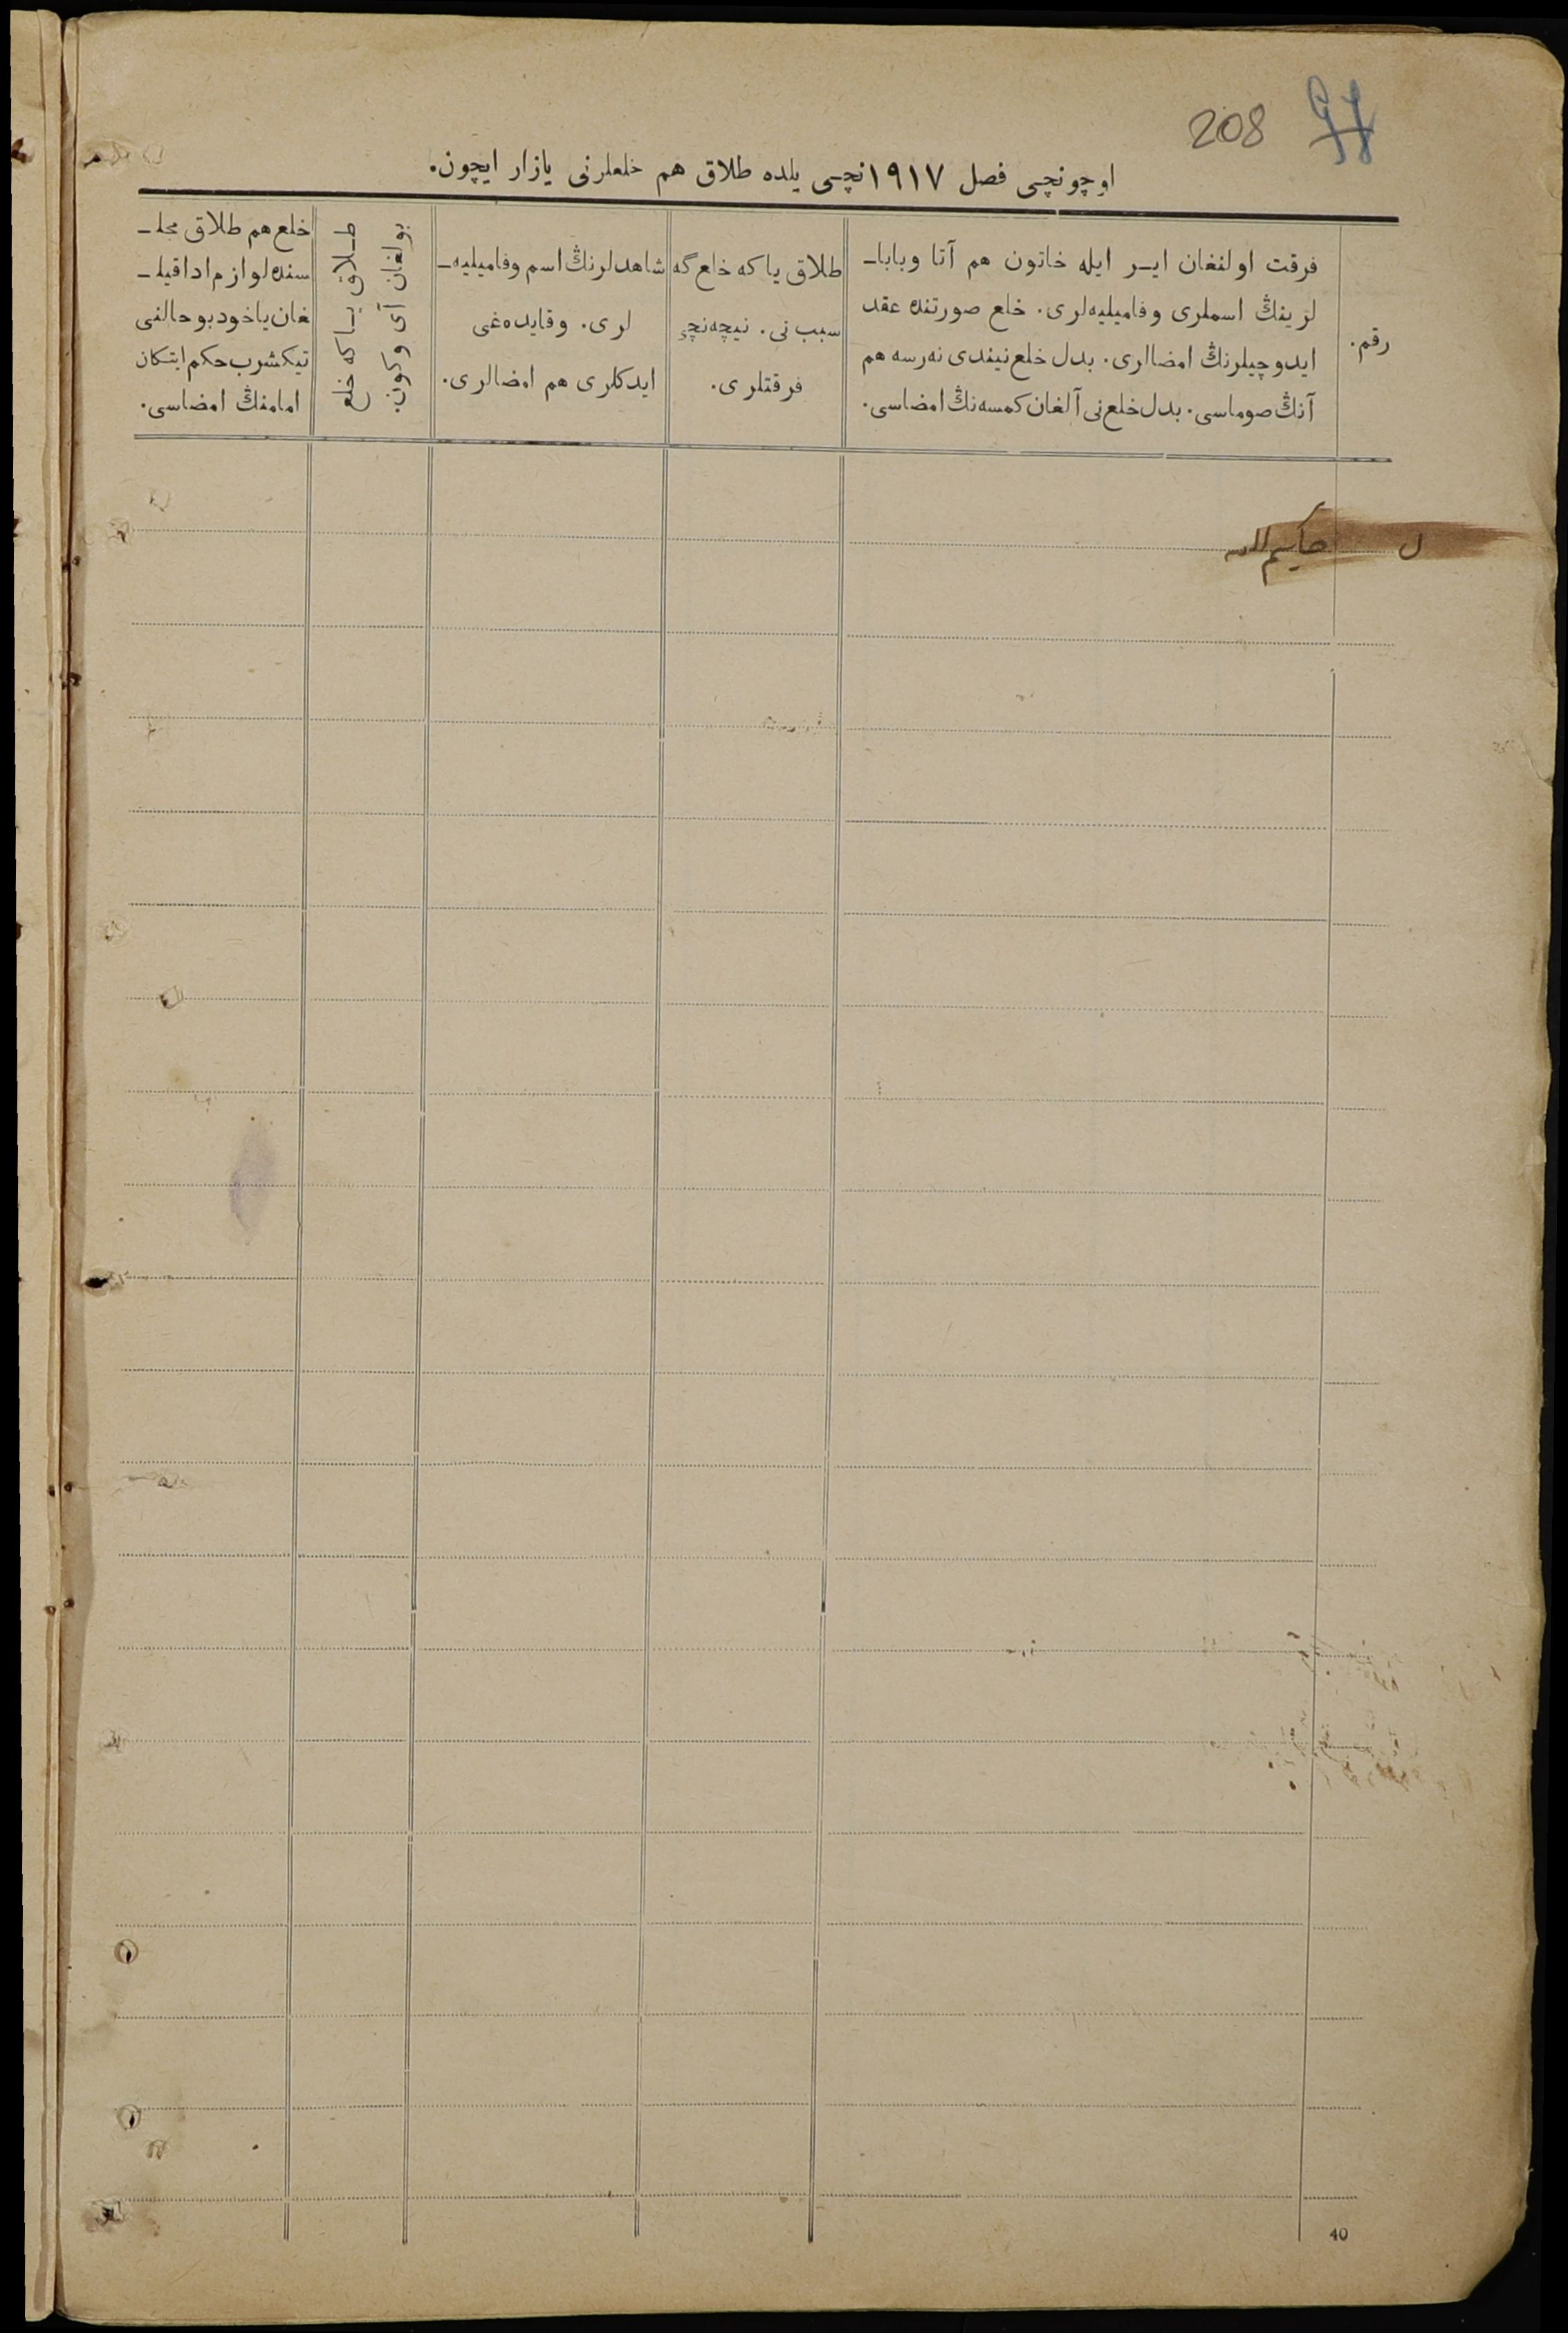 208
اوچونچی فصل ۱۹۱۷نچی یلده طلاق هم خلعلرنی یازار ایچون.
رقم.
فرقت اولنغان ایـر ایله خاتون هم آتا وباباـ
لرینڭ اسملری وفامیلیه‌لری. خلع صورتنده عقد
ایدوچیلرنڭ امضالری. بدل خلع نیندی نه‌رسه هم
آنڭ صوماسی. بدل خلع نی آلغان کمسه‌نڭ امضاسی.
طلاق یا که خلع گه
سبب نی. نیچه‌نچی
فرقتلری.
شاهدلرنڭ اسم وفامیلیه‌ـ
لری. وقایده‌غی
ایدکلری هم امضالری.
طـلاق یـا که خلع
بولغان آی و کون.
خلع هم طلاق مجلـ
سنده لوازم ادا قیلـ
غان یا خود بو حالنی
تیکشرب حکم ایتکان
امامنڭ امضاسی.
40